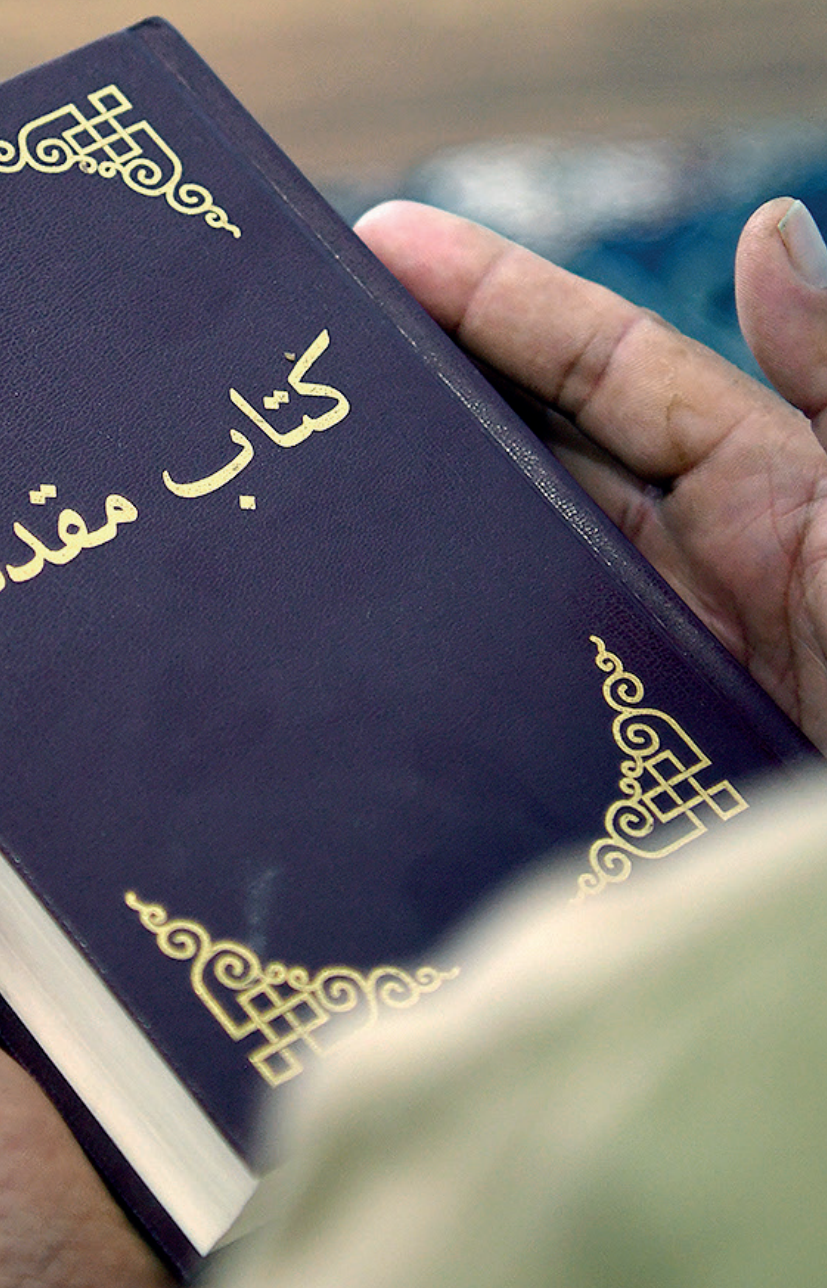 کتاب مقد